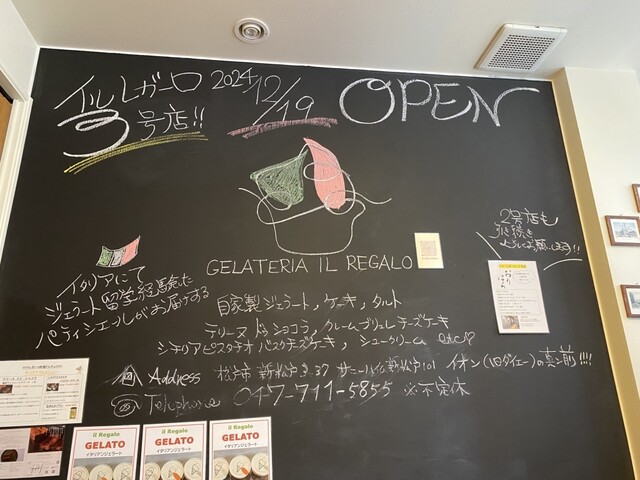 イルレガーロ 2024 12/19 OPEN
3号店!!
2号店も
引き続き
よろしくお願いします!!
GELATERIA IL REGALO
イタリアにて
ジェラート留学経験した
パティシエールがお届けする
自家製ジェラート, ケーキ, タルト
テリーヌドゥショコラ, クレームブリュレチーズケーキ
シチリアピスタチオバスクチーズケーキ, シュークリーム etc!?
Address 松戸市 新松戸3-37 サニーハイ化新松戸101 イオン(旧ダイエー)の真ん前!!!!
Telephone 047-711-5855 ※不定休
il Regalo
GELATO
イタリアンジェラート
il Regalo
GELATO
イタリアンジェラート
il Regalo
GELATO
イタリアンジェラート